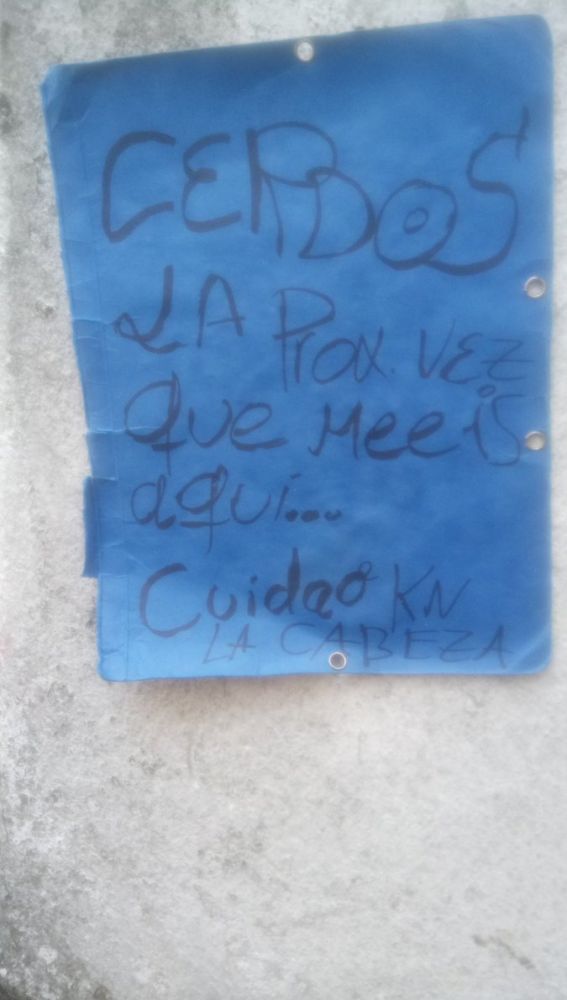 CERDOS
LA Prox. VEZ
que meeis
aquí...
Cuidao KN
LA CABEZA